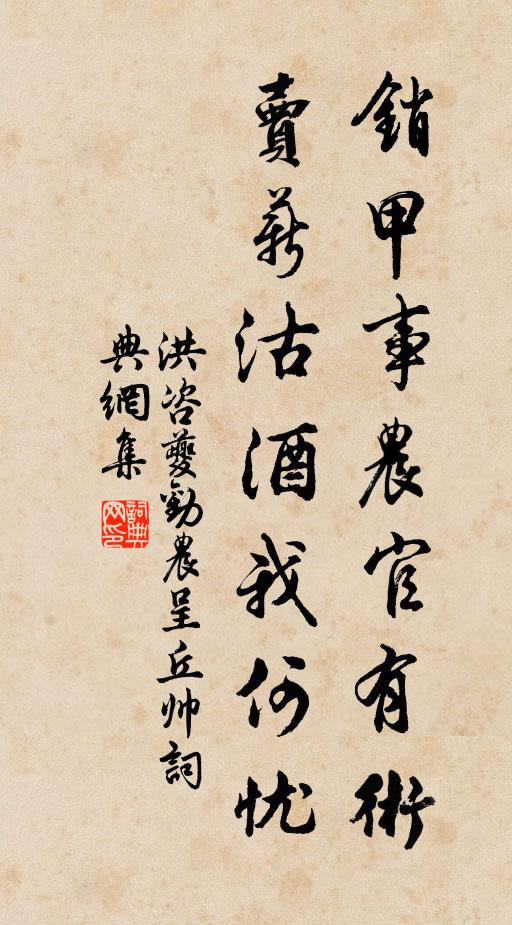 銷甲事農官有術
賣薪沽酒我何忧
洪咨夔勸農呈丘帅詞
典網集
詞典网印